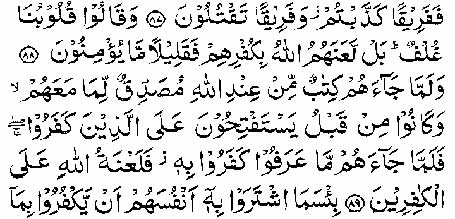 فَفَرِيْقًا كَذَّبْتُمْ ز وَفَرِيْقًا تَقْتُلُوْنَ ﴿٨٧﴾ وَقَالُوْا قُلُوْبُنَا
غُلْفٌ ؕ بَلْ لَّعَنَهُمُ اللّٰهُ بِكُفْرِهِمْ فَقَلِيْلًا مَّا يُؤْمِنُوْنَ ﴿٨٨﴾
وَلَمَّا جَآءَهُمْ كِتٰبٌ مِّنْ عِنْدِ اللّٰهِ مُصَدِّقٌ لِّمَا مَعَهُمْ ۙ
وَكَانُوْا مِنْ قَبْلُ يَسْتَفْتِحُوْنَ عَلَى الَّذِيْنَ كَفَرُوْا ۚ
فَلَمَّا جَآءَهُمْ مَّا عَرَفُوْا كَفَرُوْا بِهٖ ز فَلَعْنَةُ اللّٰهِ عَلَى
الْكٰفِرِيْنَ ﴿٨٩﴾ بِئْسَمَا اشْتَرَوْا بِهٖۤ اَنْفُسَهُمْ اَنْ يَّكْفُرُوْا بِمَاۤ